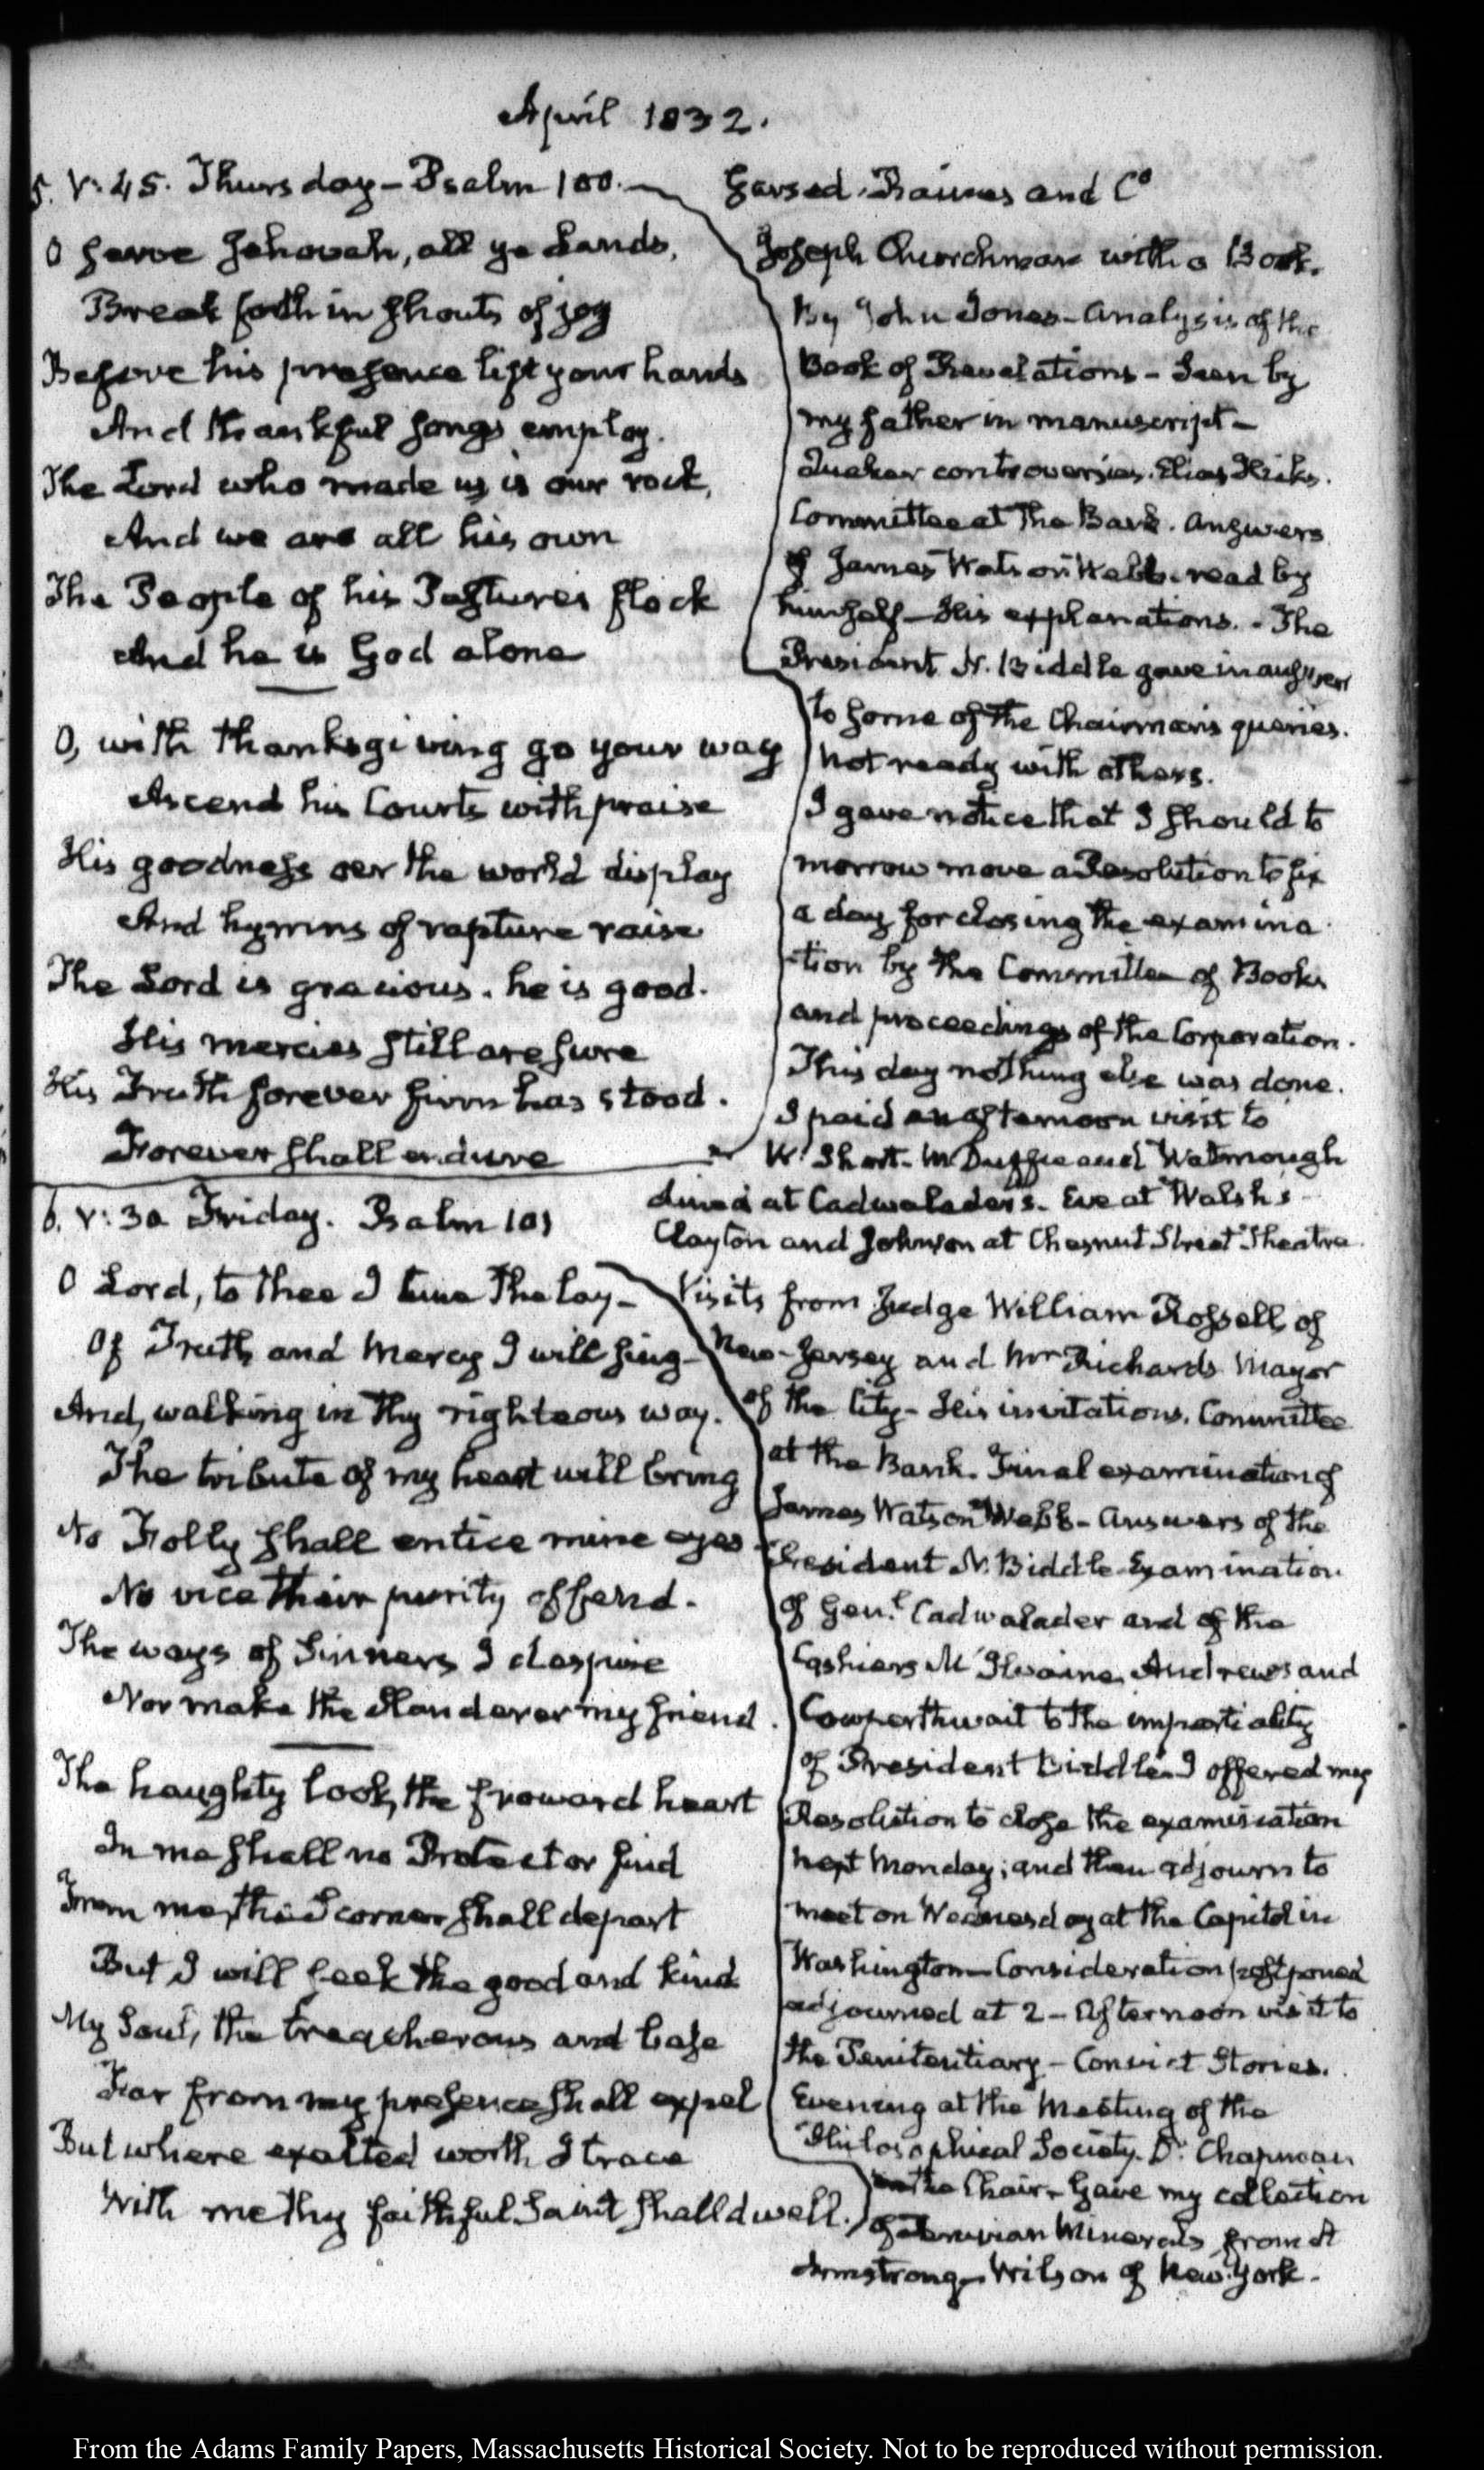 April 1832.
5. V:45. Thursday - Psalm 100.
O serve Jehovah, all ye Lands,
Break forth in shouts of joy
Before his presence lift your hands
And thankful songs employ.
The Lord who made us is our rock,
And we are all his own
The People of his Pastures flock
And he is God alone
O, with thanksgiving go your way
Ascend his Courts with praise
His goodness oer the world display
And hymns of rapture raise
The Lord is gracious. he is good.
His mercies still are sure
His Truth forever firm has stood.
Forever shall endure
Garsed, Raines and Co
Joseph Churchman with a Book.
By John Jones - Analysis of the
Book of Revelations - Seen by
my father in manuscript -
Quaker controversies. Elias Hicks.
Committee at the Bank. Answers
of James Watson Webb. read by
himself - His explanations. - The
President N. Biddle gave in answers
to some of the Chairman's queries.
not ready with others.
I gave notice that I should to
morrow move a Resolution to fix
a day for closing the examina
-tion by the Committee of Books
and proceedings of the Corporation.
This day nothing else was done.
I paid an afternoon visit to
W. Short - McDuffie and Watmough
dined at Cadwaladers. Eve at Walsh's -
Clayton and Johnson at Chesnut Street Theatre
6. V:30 Friday. Psalm 101
O Lord, to thee I tune the lay -
Of Truth and Mercy I will sing -
And, walking in thy righteous way.
The tribute of my heart will bring
No Folly shall entice mine eyes -
No vice their purity offend.
The ways of Sinners I despise
Nor make the slanderer my friend.
The haughty look, the froward heart
In me shall no Protector find
From me, the Scorner shall depart
But I will seek the good and kind
My Soul, the treacherous and base
Far from my presence shall expel
But where exalted worth I trace
With me thy faithful Saint shall dwell.
Visits from Judge William Rossell, of
New-Jersey and Mr Richards Mayor
of the City - His invitations. Committee
at the Bank. Final examination of
James Watson Webb - Answers of the
President N. Biddle - Examination
of Genl. Cadwalader and of the
Cashiers McIlvaine, Andrews and
Cowperthwait to the impartiality
of President Biddle. I offered my
Resolution to close the examination
next Monday; and then adjourn to
meet on Wednesday at the Capitol in
Washington - Consideration postponed
adjourned at 2 - Afternoon visit to
the Penitentiary - Convict Stories.
Evening at the Meeting of the
Philosophical Society. Dr. Chapman
in the Chair - Gave my collection
of Peruvian Minerals from A
Armstrong - Wilson of New York -
From the Adams Family Papers, Massachusetts Historical Society. Not to be reproduced without permission.